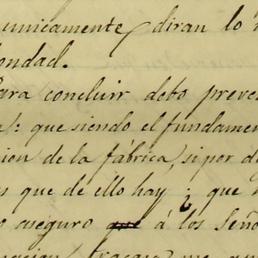 unicamente, diran lo
bondad.
Para concluir debo preve
: que siendo el fundamen
ion de la fábrica, si por d
que de ello hay ¿ que
aseguro que á los Seño